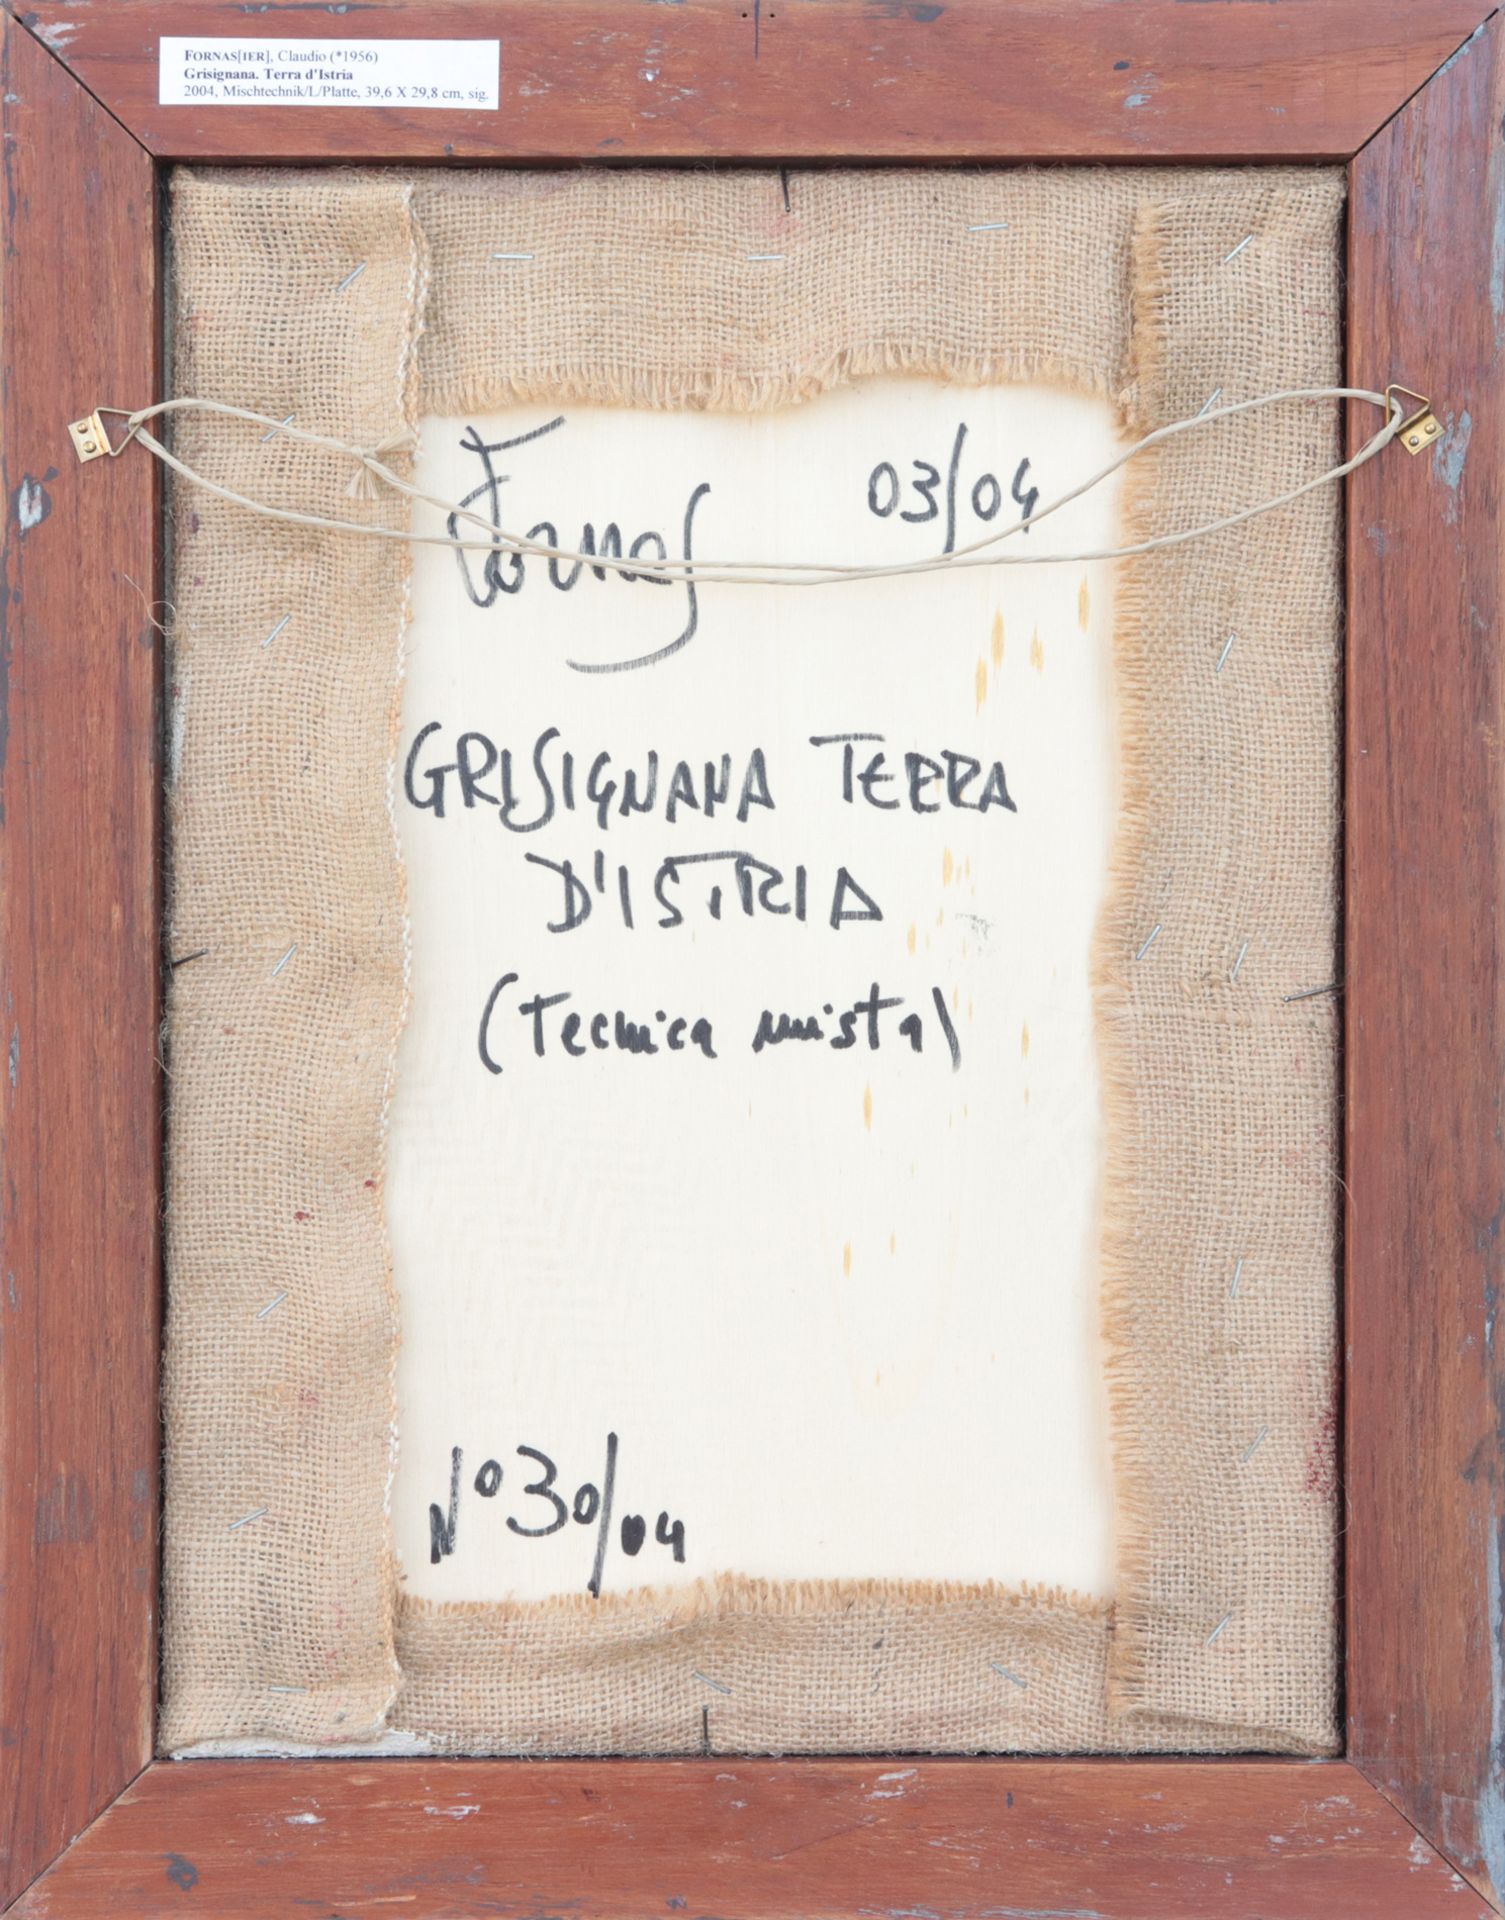 FORNAS[IER], Claudio (*1956)
Grisignana. Terra d'Istria
2004, Mischtechnik/L/Platte, 39,6 X 29,8 cm, sig.
Fornas 03/04
GRISIGNANA TERRA
D'ISTRIA
(Tecnica mista)
N° 30/04